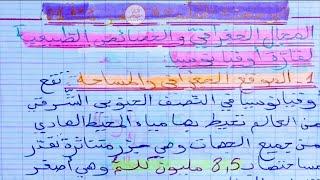 المجال الجغرافي و الخصائص الطبيعية
لقارة أوقيانوسيا
1. الموقع الجغرافي والمساحة: تقع
وقيانوسيا في النصف الجنوبي الشرقي
من العالم تحيط بها مياه المحيط الهادي
من جميع الجهات وهي جزر متناثرة تقدر
مساحتها ب 8,5 مليون كلم² وهي أصغر